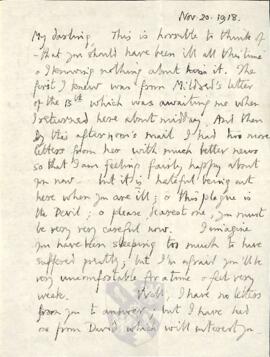 Nov. 20. 1918.
My darling, This is horrible to think of
- that you should have been ill all this time
& I knowing nothing about it. The
first I knew was from Mildred's letter
of the 13th which was awaiting me when
I returned here about midday. And then
by this afternoon's mail I had two more
letters from her with much better news
so that I am feeling fairly happy about
you now - but it is hateful being out
here when you are ill; & this plague is
the Devil; & please, dearest one, you must
be very very careful now. I imagine
you have been sleeping too much to have
suffered greatly; but I'm afraid you'll be
very uncomfortable for a time & feel very
weak. Well, I have no letters
from you to answer; but I have had
one from David which will interest you -